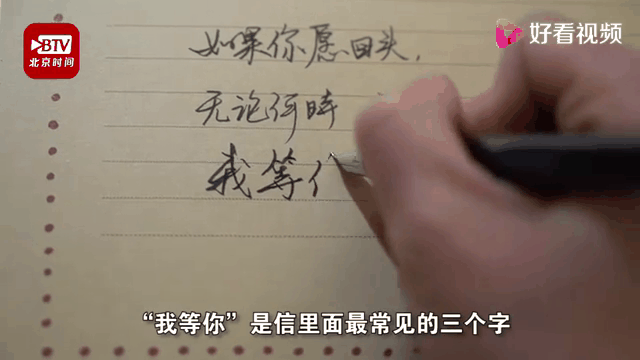 BTV
北京时间
好看视频
如果你愿回头，
无论何時
我等
“我等你”是信里面最常见的三个字